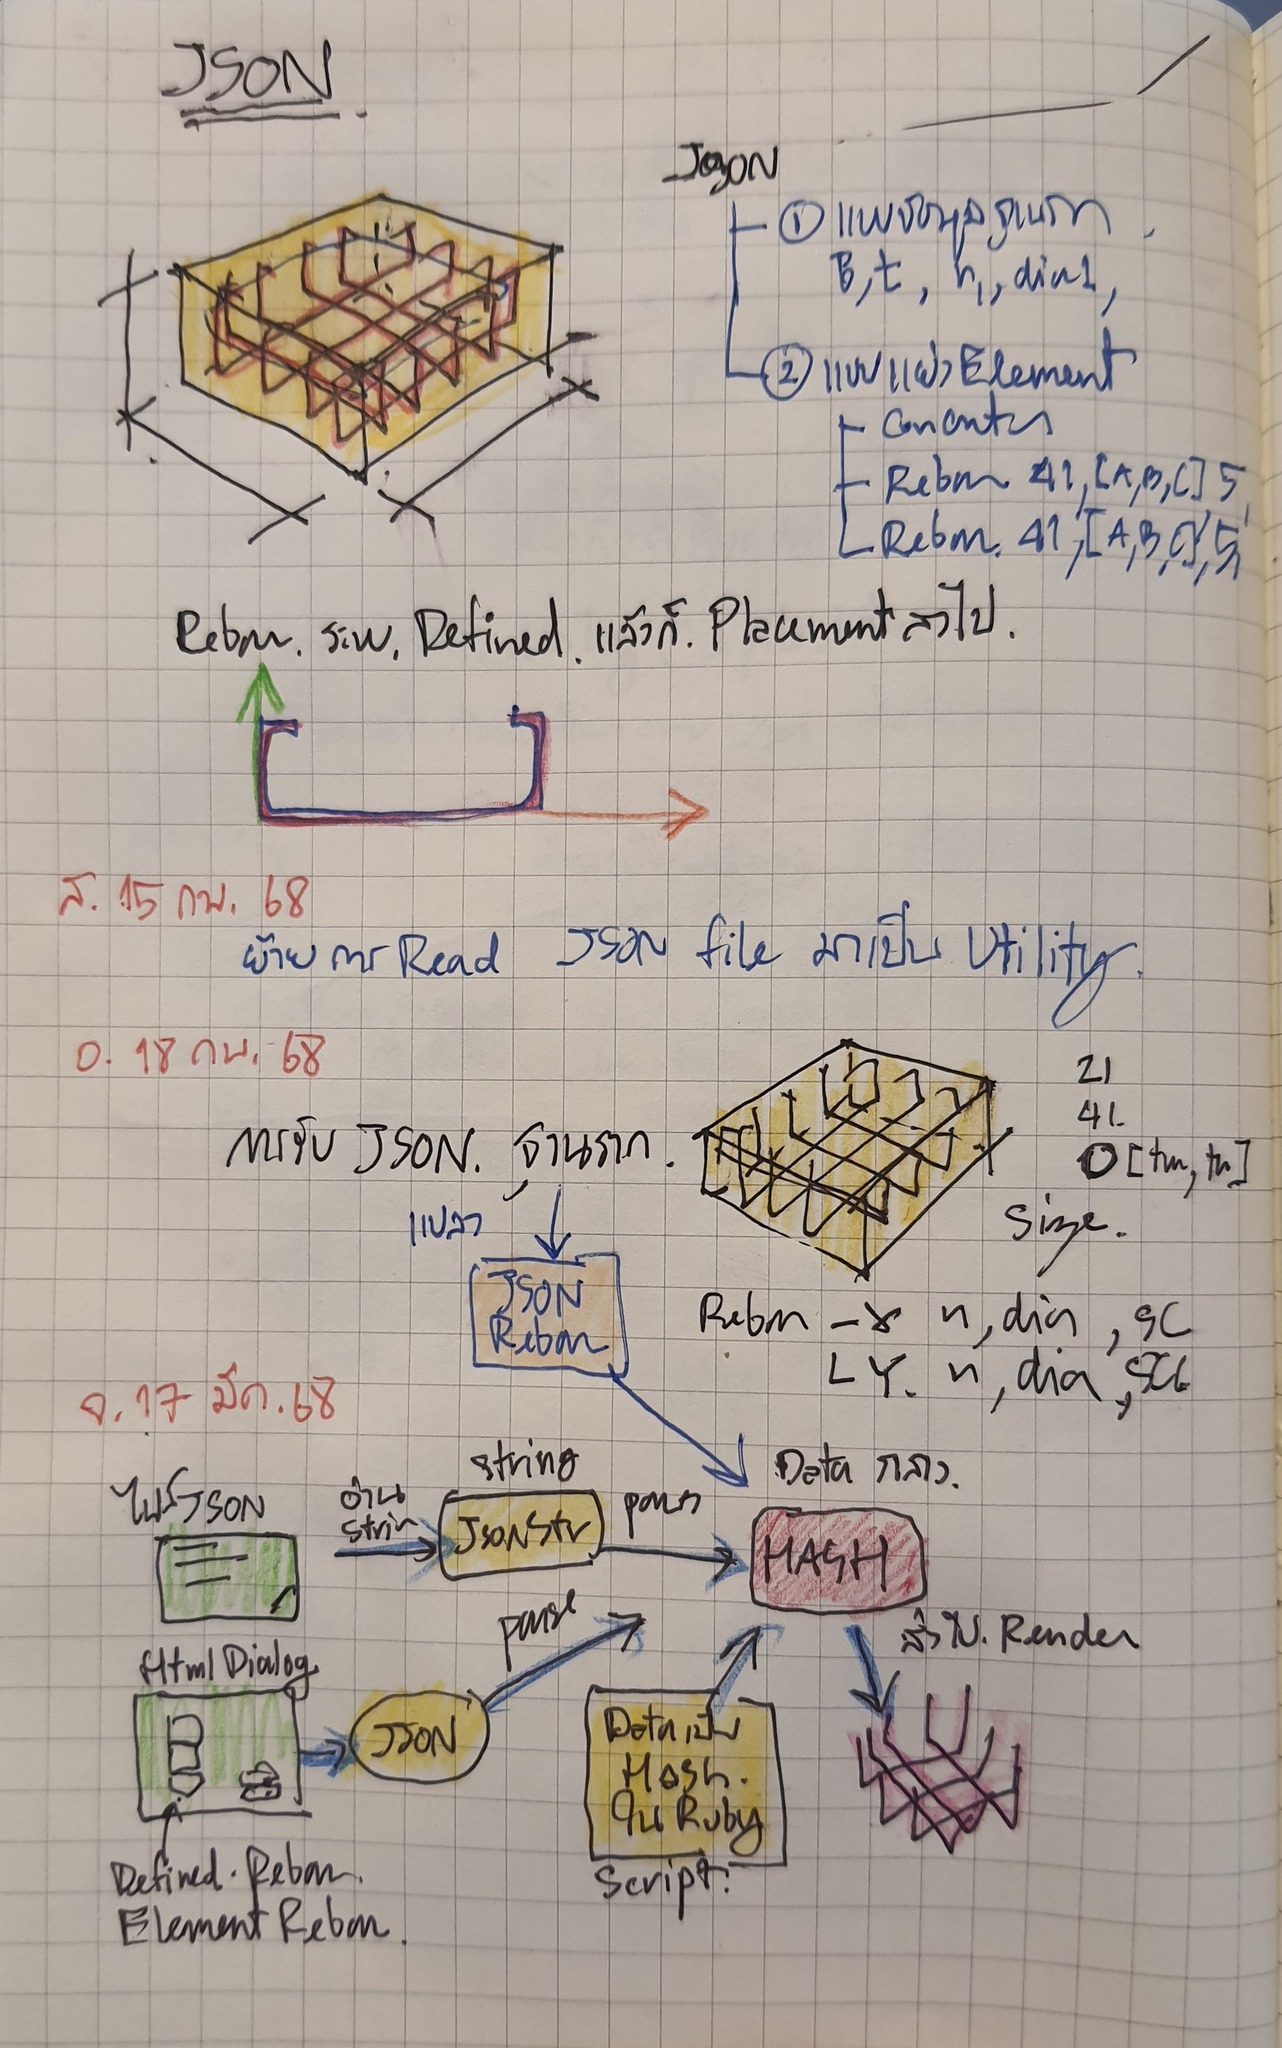 JSON
JSON
① แบบข้อมูลฐานราก
B, t, n1, dia1,
② แบบแผ่ Element
Concrete
Rebar 41, [A,B,C] 5,
Rebar. 41, [A,B,C], 5,
Rebar. ระบบ. Defined. แล้วก็. Placement ลงไป.
ส. 15 กพ. 68
ย้ายการ Read JSON file มาเป็น Utility.
อ. 18 กพ. 68
21
41.
การรับ JSON. ฐานราก.
0 [tm, tn]
แปลง
Size.
JSON
Rebar
Rebar – X n, dia, SC
Y. n, dia, SCL
จ. 17 มีค. 68
string
Data กลาง.
ไฟล์ JSON
อ่าน
String
JsonStr
parse
HASH
parse
ส่งไป. Render
Html Dialog
JSON
Data เป็น
Hash.
ใน Ruby
Script.
Defined. Rebar.
Element Rebar.